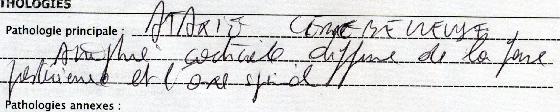 THOLOGIES
Pathologie principale : ATAXIE CEREBELLEUSE
Atrophie corticale diffuse de la fosse
postérieure et l'axe spinal
Pathologies annexes :